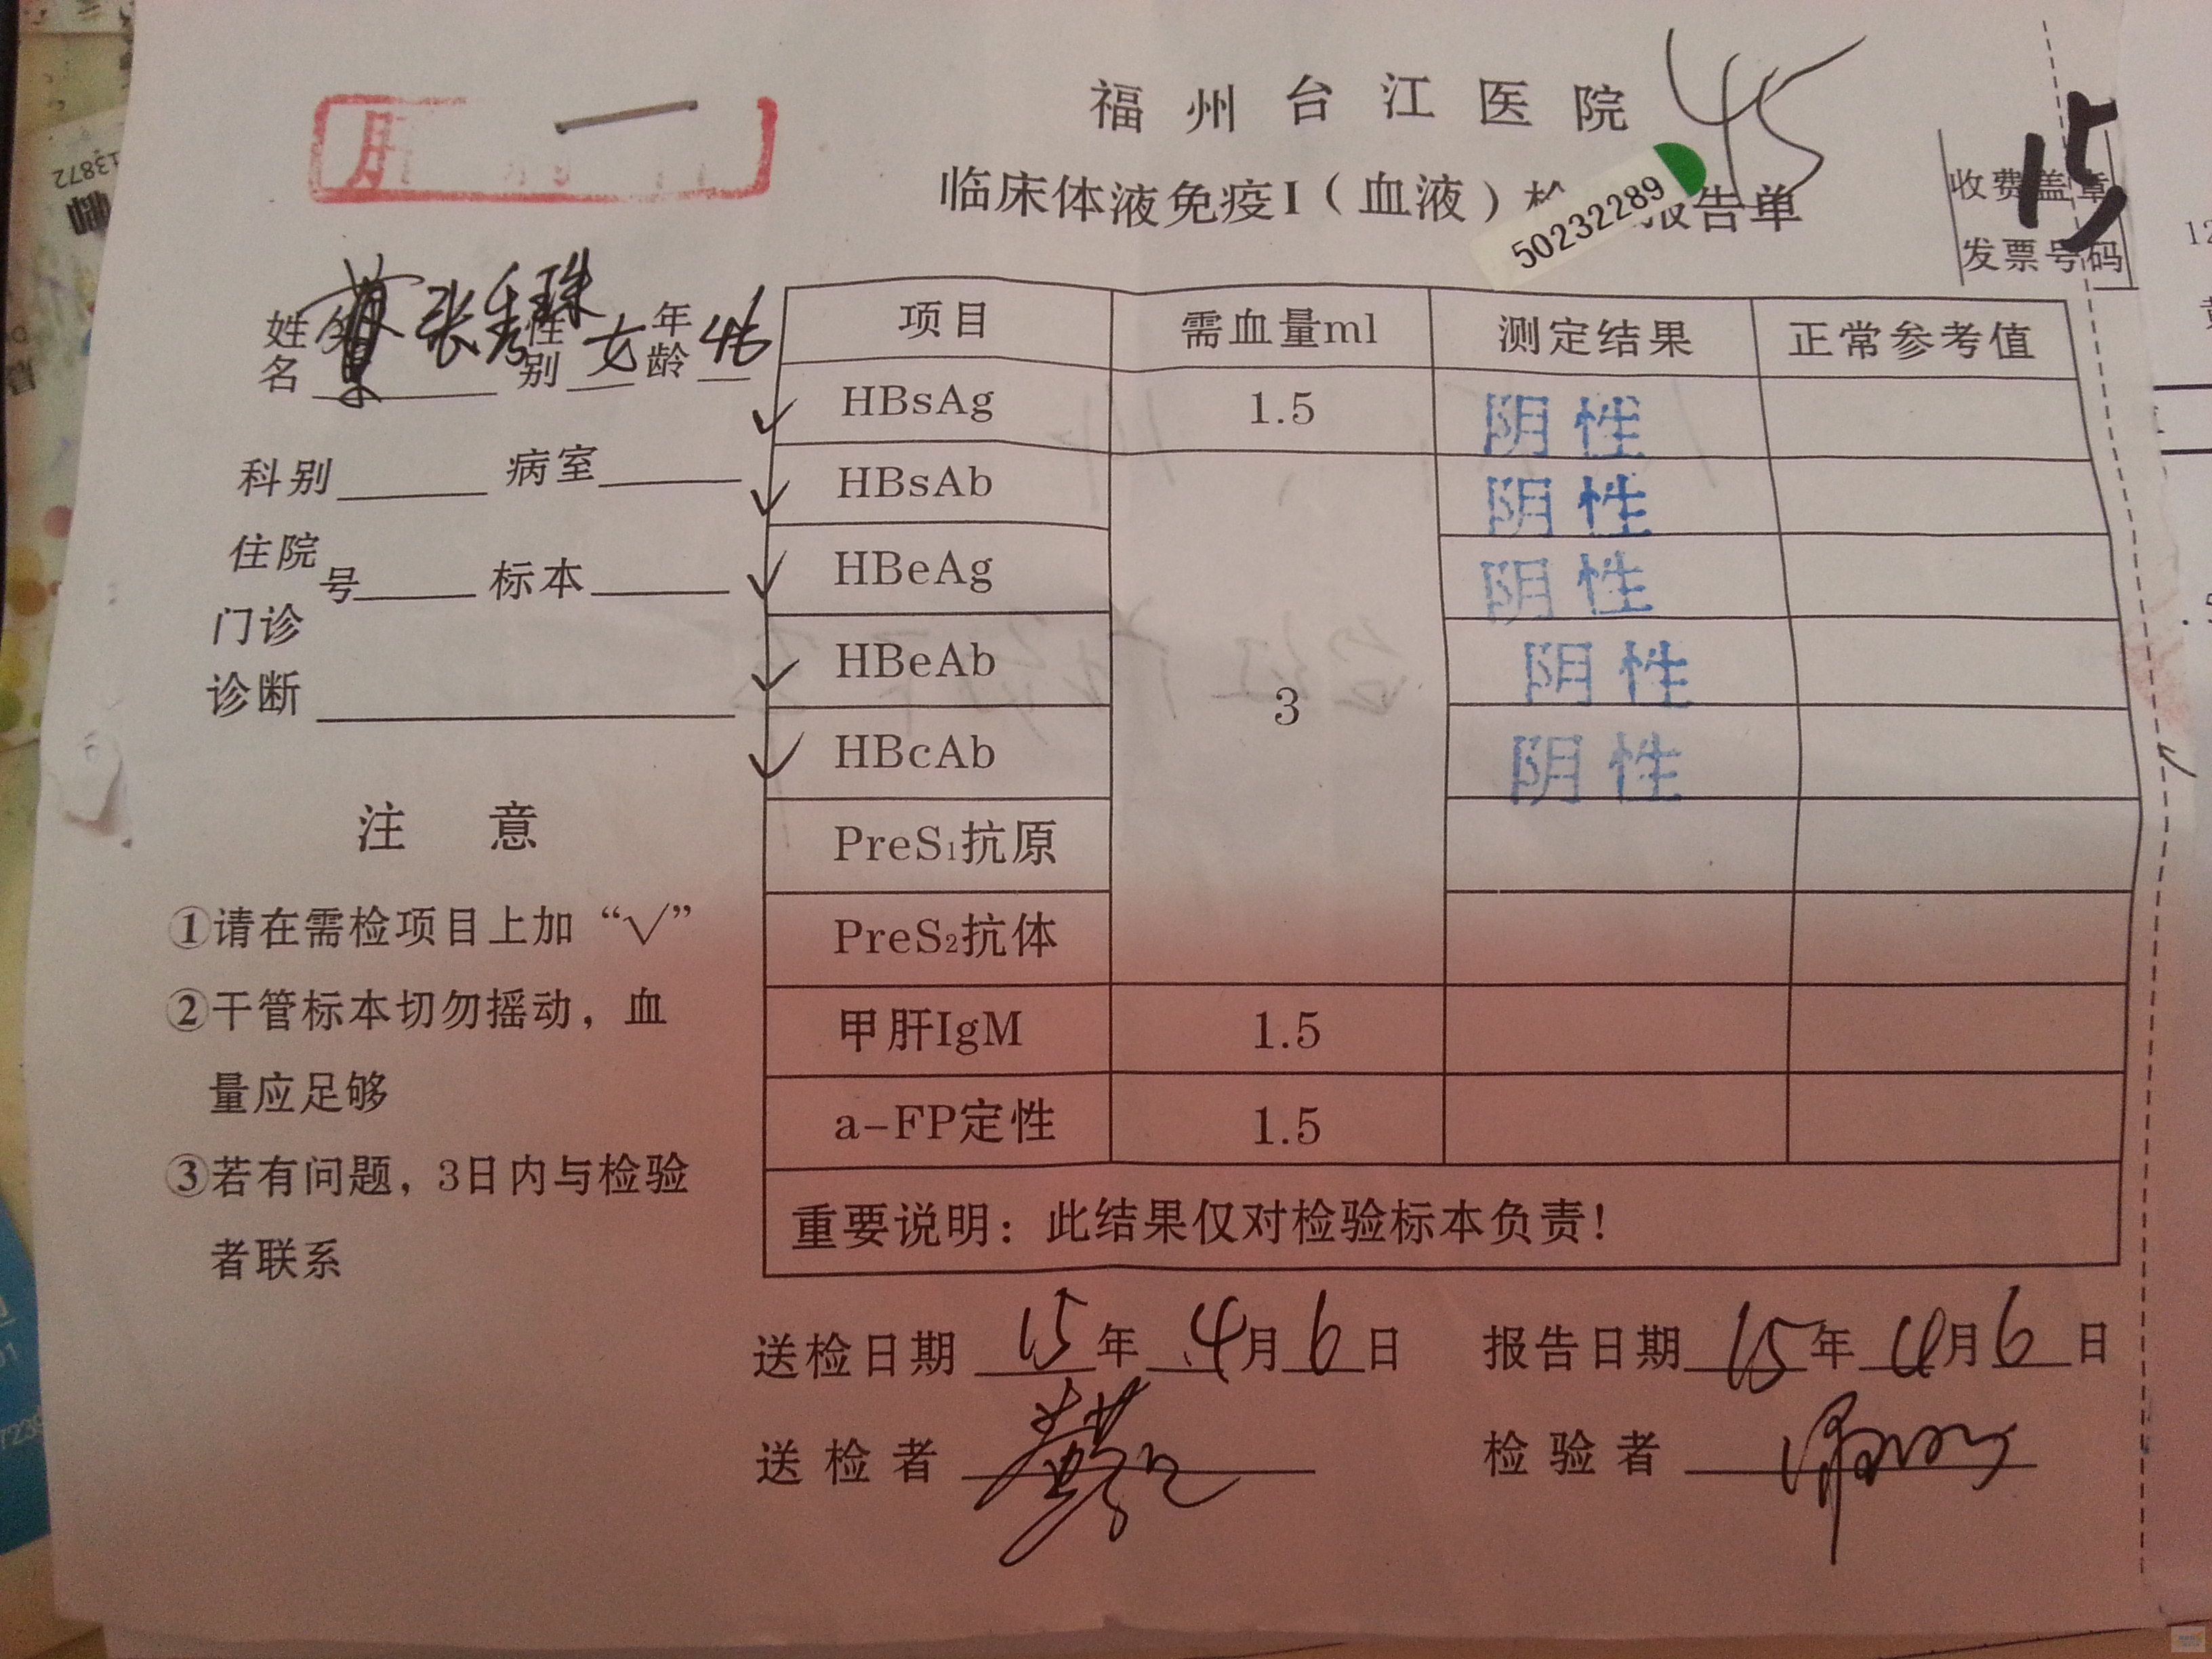 福州台江医院
45
临床体液免疫I（血液）检 报告单
50232289
15
收费盖章
发票号码
肝
姓名 张秀珠 性别 女 年龄 46
科别 病室
住院号 标本
门诊
诊断
注 意
①请在需检项目上加“√”
②干管标本切勿摇动，血
量应足够
③若有问题，3日内与检验
者联系
项目 需血量ml 测定结果 正常参考值
✓ HBsAg 1.5 阴性
✓ HBsAb 阴性
✓ HBeAg 阴性
✓ HBeAb 3 阴性
✓ HBcAb 阴性
PreS₁抗原
PreS₂抗体
甲肝IgM 1.5
a-FP定性 1.5
重要说明：此结果仅对检验标本负责！
送检日期 15年 4月 6日 报告日期 15年 4月 6日
送检者 检验者
13872